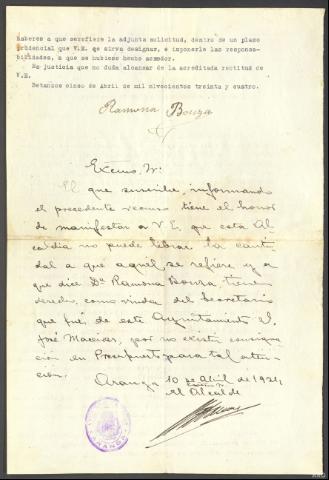 haberes a que serefiere la adjunta solicitud, dentro de un plazo
prudencial que V.E. se sirva designar, e imponerle las responsa-
bilidades, a que se hubiese hecho acredor.
Es justicia que no duda alcanzar de la acreditada rectitud de
V.E.
Betanzos cinco de Abril de mil novecientos treinta y cuatro.
Ramona Bouza
Excmo. Sr.
El que suscribe, informando
el precedente recurso tiene el honor
de manifestar a V.E. que esta Al
caldia no puede librar la canti
dad a que aquel se refiere y a
que dice Dª Ramona Bouza, tiene
derecho, como viuda del Secretario
que fué de este Ayuntamiento
José por no existir consigna
ción en Presupuesto para tal aten
ción.
Aranga 10 de Abril de 1934
El Alcalde
ARANGA